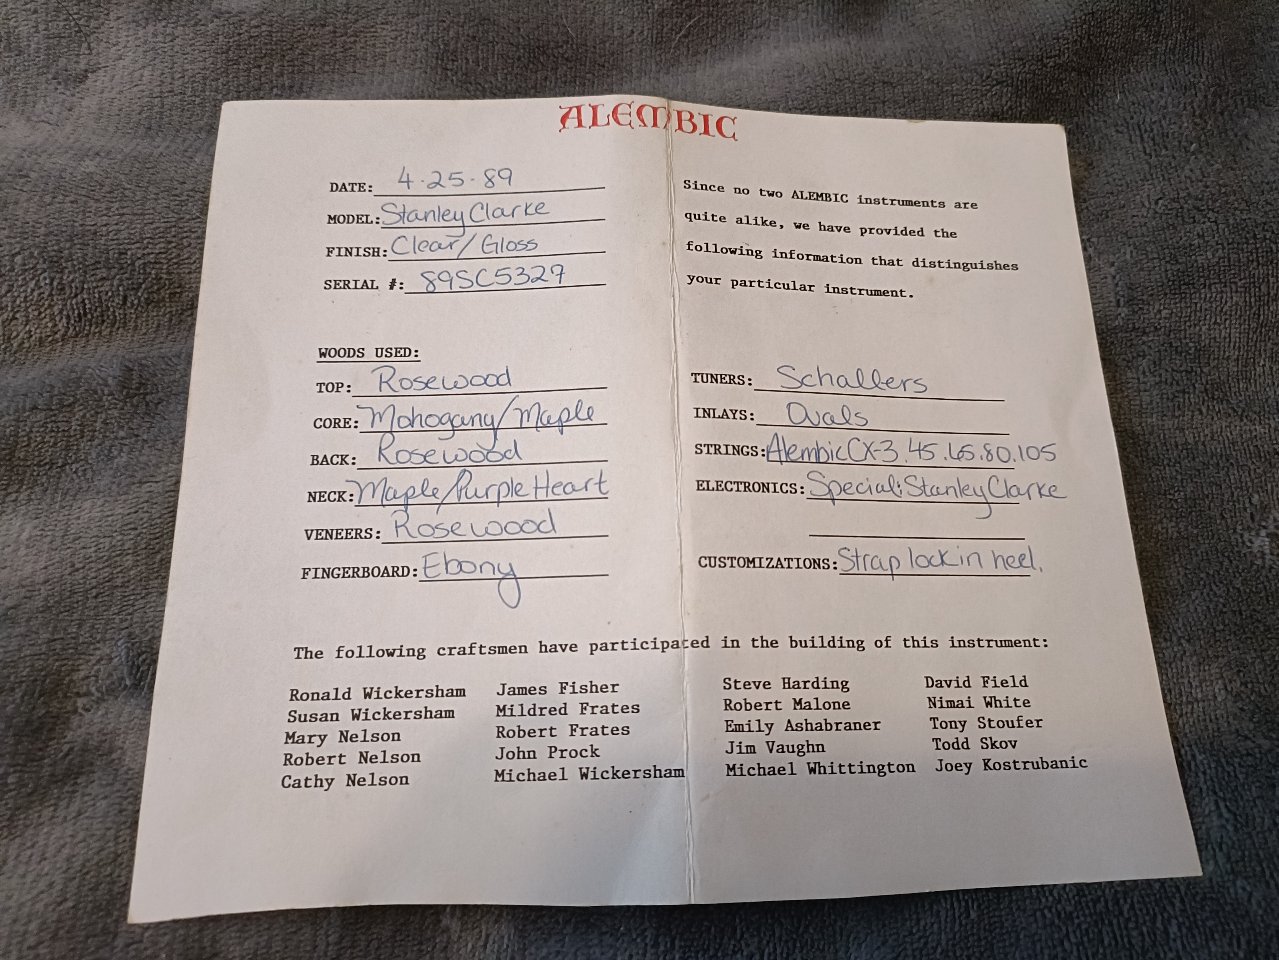 ALEMBIC
DATE: 4·25·89
MODEL: Stanley Clarke
FINISH: Clear/Gloss
SERIAL #: 89SC5327
Since no two ALEMBIC instruments are
quite alike, we have provided the
following information that distinguishes
your particular instrument.
WOODS USED:
TOP: Rosewood
CORE: Mahogany/Maple
BACK: Rosewood
NECK: Maple/Purple Heart
VENEERS: Rosewood
FINGERBOARD: Ebony
TUNERS: Schallers
INLAYS: Ovals
STRINGS: Alembic CX-3 .45.65.80.105
ELECTRONICS: Special: Stanley Clarke
CUSTOMIZATIONS: Strap lock in heel.
The following craftsmen have participated in the building of this instrument:
Ronald Wickersham James Fisher Steve Harding David Field
Susan Wickersham Mildred Frates Robert Malone Nimai White
Mary Nelson Robert Frates Emily Ashabraner Tony Stoufer
Robert Nelson John Prock Jim Vaughn Todd Skov
Cathy Nelson Michael Wickersham Michael Whittington Joey Kostrubanic